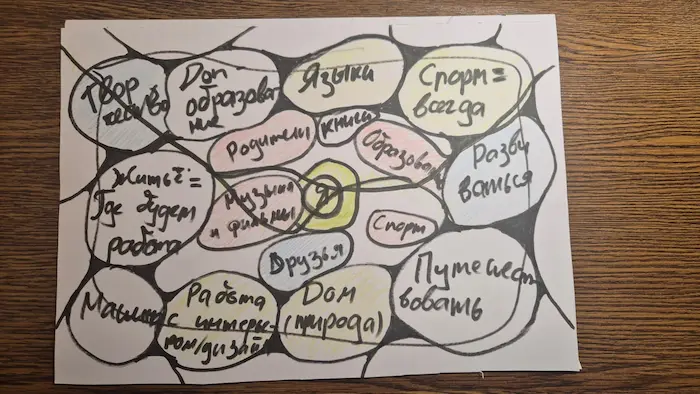 Твор
чество
Доп
образова
ние
Языки
Спорт =
всегда
Родители
книги
Образован
Разви
ваться
Жильё =
Где будет
работа
Музыка
и фильмы
Я
Спорт
Друзья
Путешест
вовать
Машина
Работа
с интерье
ром/дизайн
Дом
(природа)